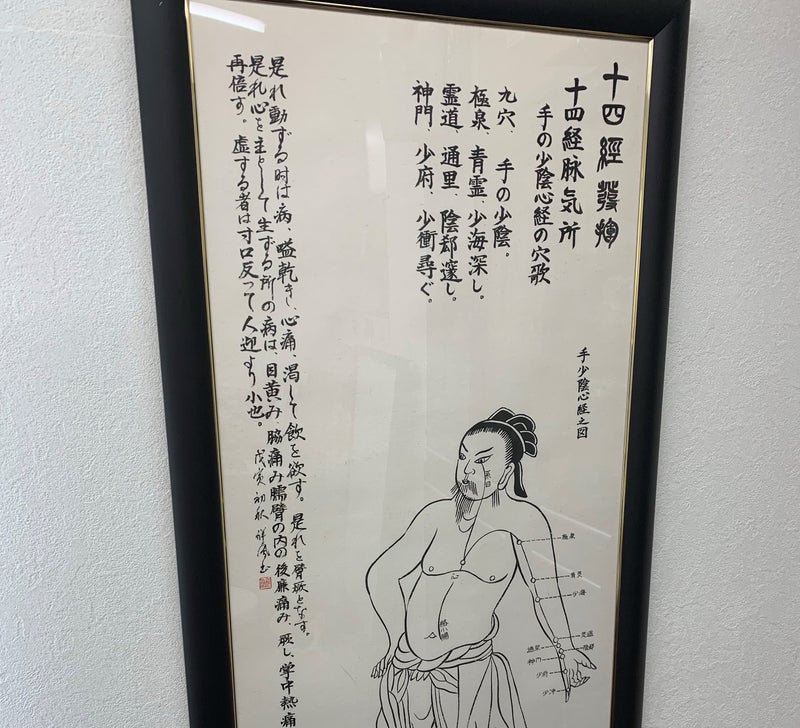 十四經發揮
十四経脉気所
手の少陰心経の穴歌
九穴、 手の少陰。
極泉、青霊、少海深し。
霊道、通里、陰郄邃し。
神門、少府、少衝尋ぐ。
是れ動ずる時は病、嗌乾き、心痛、渇して飲を欲す。是れを臂厥となす。
是れ心を主として生ずる所の病は、目黄み、脇痛み、臑臂の内の後廉痛み、厥し、掌中熱痛
再倍す。虚する者は寸口反って人迎より小也。
戊寅 初秋
手少陰心経之図
極泉
青灵
少海
灵道
通里
陰郄
神門
少府
少冲
絡小腸